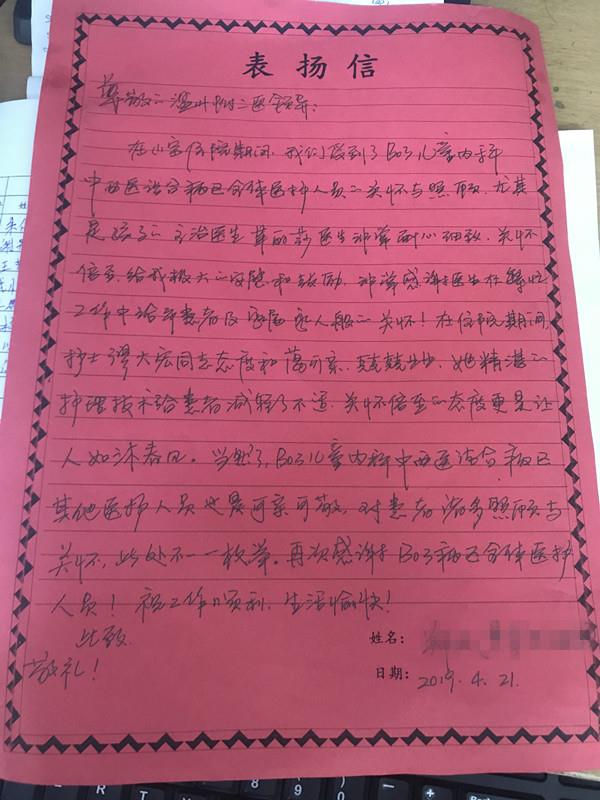 表扬信
尊敬的温州附二医领导：
在山宝住院期间，我们受到了B03儿童内科
中西医结合病区全体医护人员的关怀与照顾，尤其
是孩子的主治医生 医生非常耐心细致，关怀
倍至，给我极大的安慰和鼓励，非常感谢医生在繁忙
工作中给予患者及家属亲人般的关怀！在住院期间，
护士缪大宏同志态度和蔼可亲，兢兢业业，她精湛的
护理技术给患者减轻了不适，关怀倍至的态度更是让
人如沐春风。当然了，B03儿童内科中西医结合病区
其他医护人员也是可亲可敬，对患者诸多照顾与
关怀，此处不一一枚举。再次感谢B03病区全体医护
人员！祝工作顺利，生活愉快！
此致
敬礼！
姓名：
日期：2019.4.21